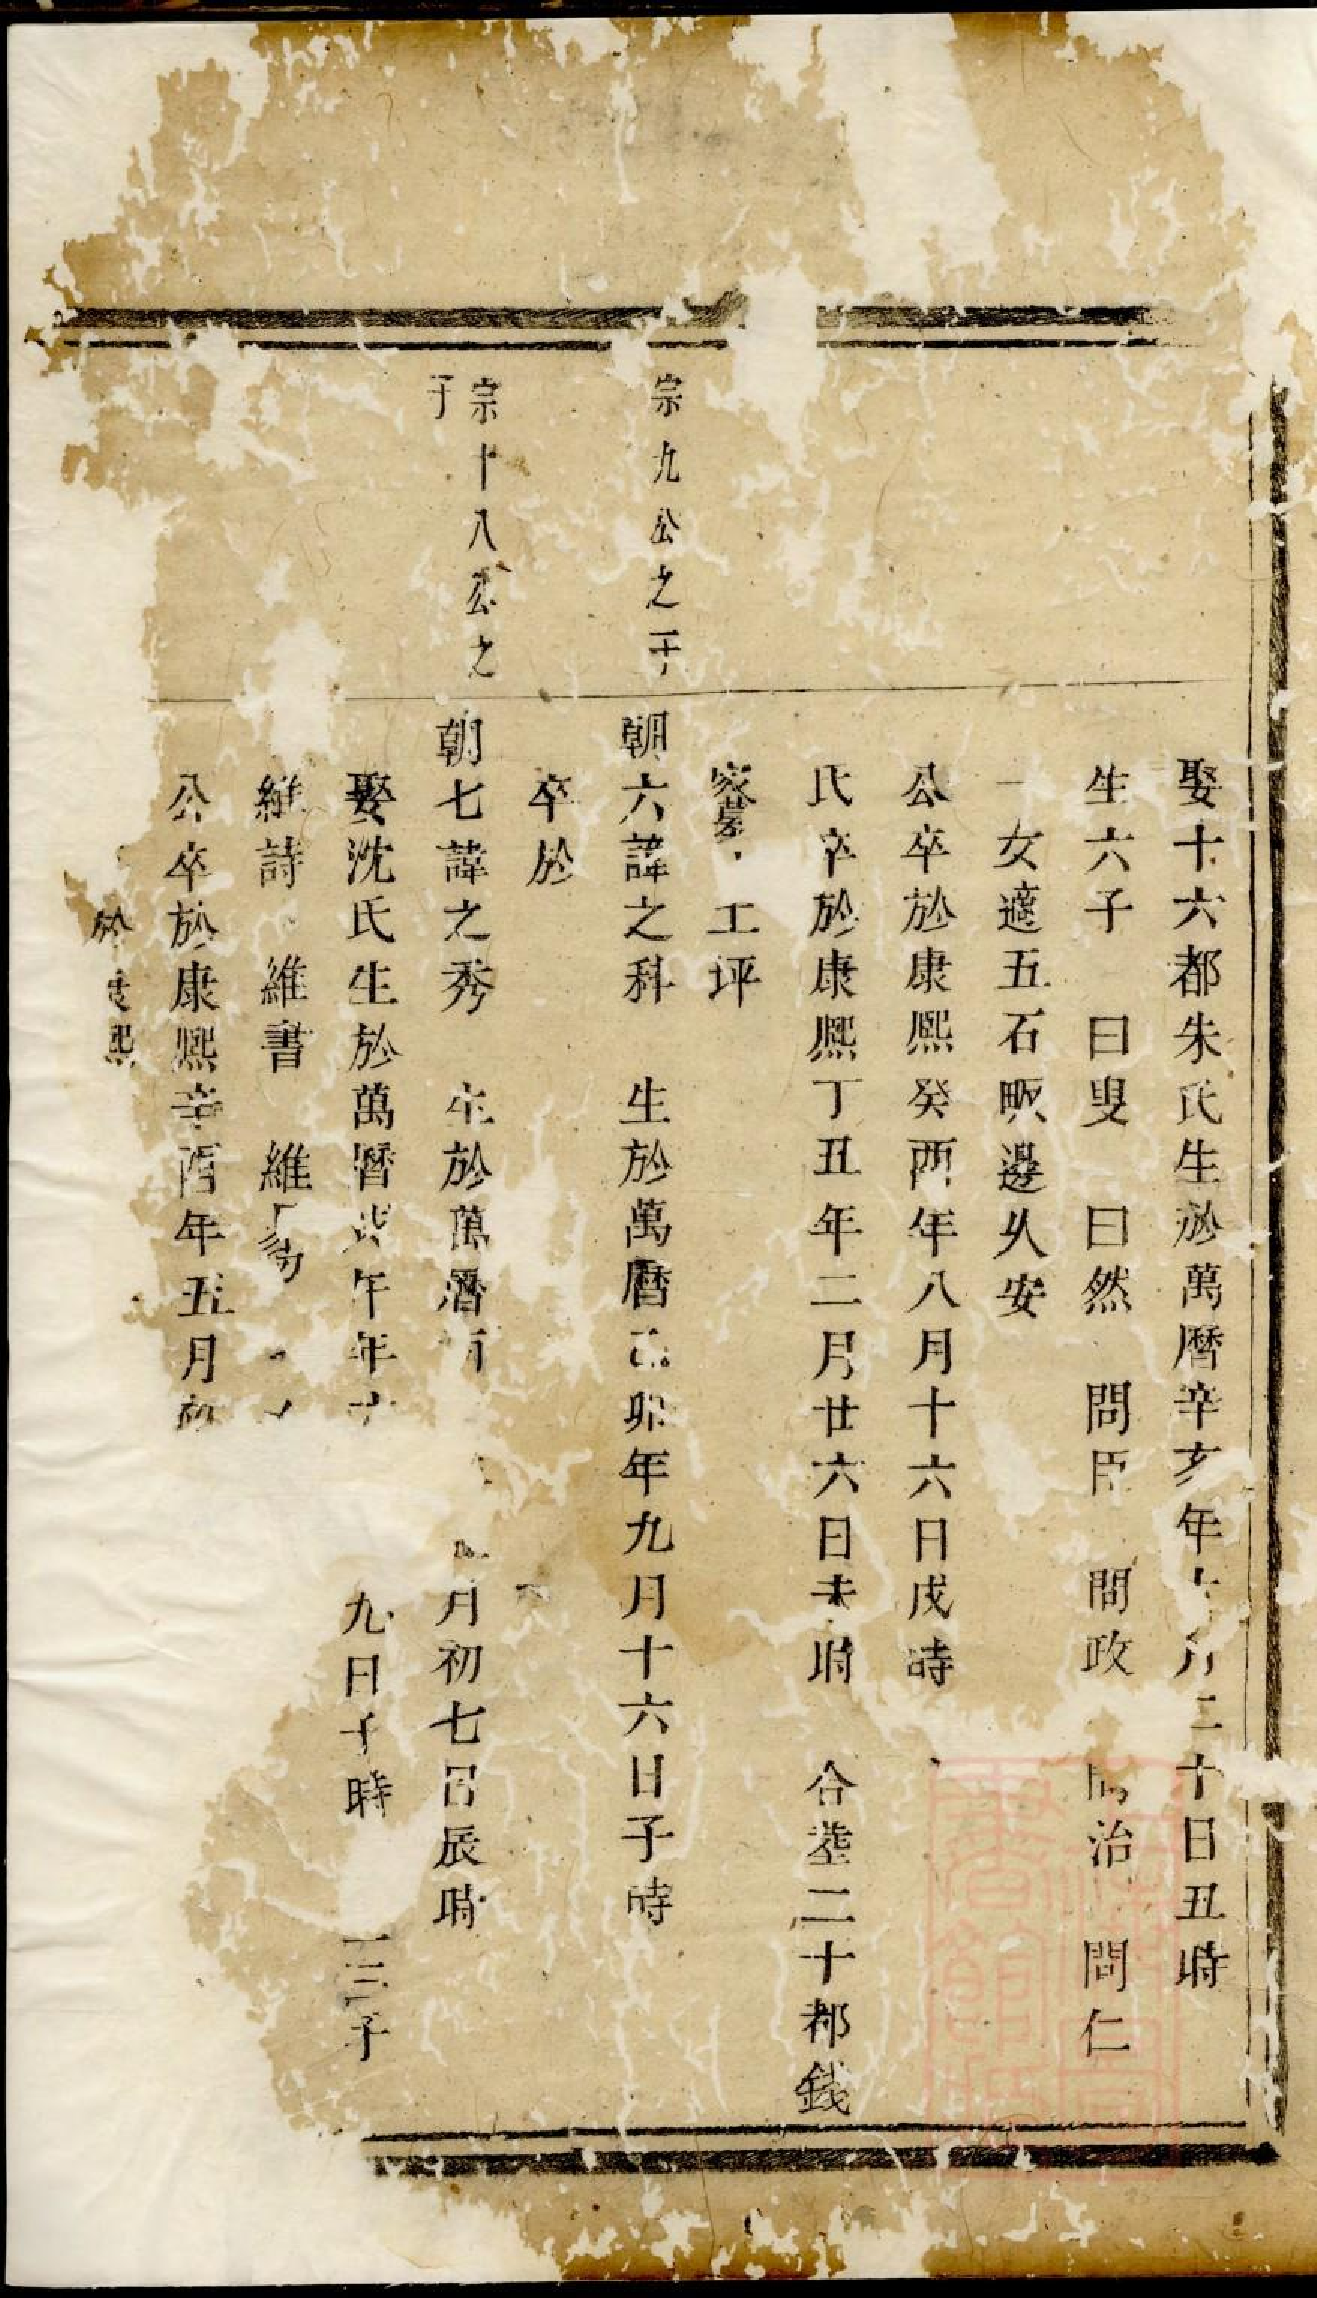 娶十六都朱氏生於萬曆辛亥年 月二十日丑時
生六子 曰叟 曰然 問臣 問政 問治 問仁
一女適五石畈邊乆安
公卒於康熙癸酉年八月十六日戌時
氏卒於康熙丁丑年二月廿六日未時 合塟二十都錢
家墓 工坪
宗九公之子
朝六諱之科 生於萬曆己卯年九月十六日子時
卒於
宗十八公之
子
朝七諱之秀 生於萬曆 月初七日辰時
娶沈氏生於萬曆 午年十 九日子時 三子
維詩 維書 維易
公卒於康熙辛酉年五月初
於康熙